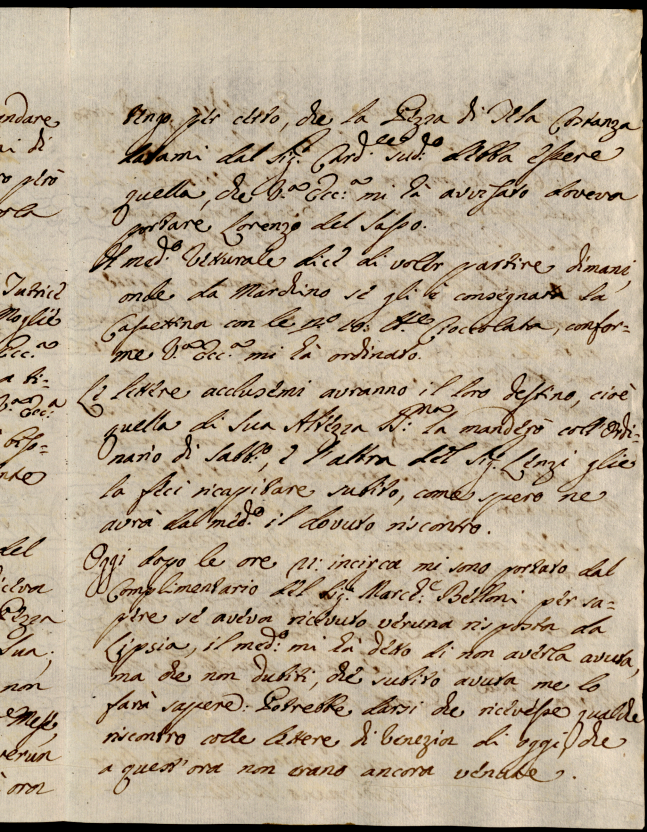 Tengo per certo, che la Pezza di Tela Costanza
datami dal Sig.r Card.le sud.o debba essere
quella, che V.a Ecc.a mi hà avvisato doveva
portare Lorenzo del Sasso.
Il med.o Vetturale dice di voler partire dimani,
onde da Marchino se gli è consegnata la
Cassettina con le n.o 10: ll.e Cioccolata, confor=
me V.a Ecc.a mi hà ordinato.
Le lettere acclusemi avranno il loro destino, cioè
quella di Sua Altezza S.ma la manderò coll'ordi=
nario di Sabb.o, e l'altra del Sig.r Lenzi glie
la feci ricapitare subito, come spero ne
avrà dal med.o il dovuto riscontro.
Oggi dopo le ore 21: incirca mi sono portato dal
Complimentario del Sig.r March.e Belloni per sa=
pere se aveva ricevuto veruna risposta da
Lipsia, il med.o mi hà detto di non averla avuta,
ma che non dubiti, che subito avuta me lo
farà sapere: Potrebbe darsi che ricevesse qualche
riscontro colle lettere di Venezia di oggi, che
a quest'ora non erano ancora venute.
andare
ai di
o però
Moglie
Ecc.a
a ti=
V.a Ecc.a
biso=
nte
del
diceva
Pezza
Sua;
non
Mese,
verun
ora